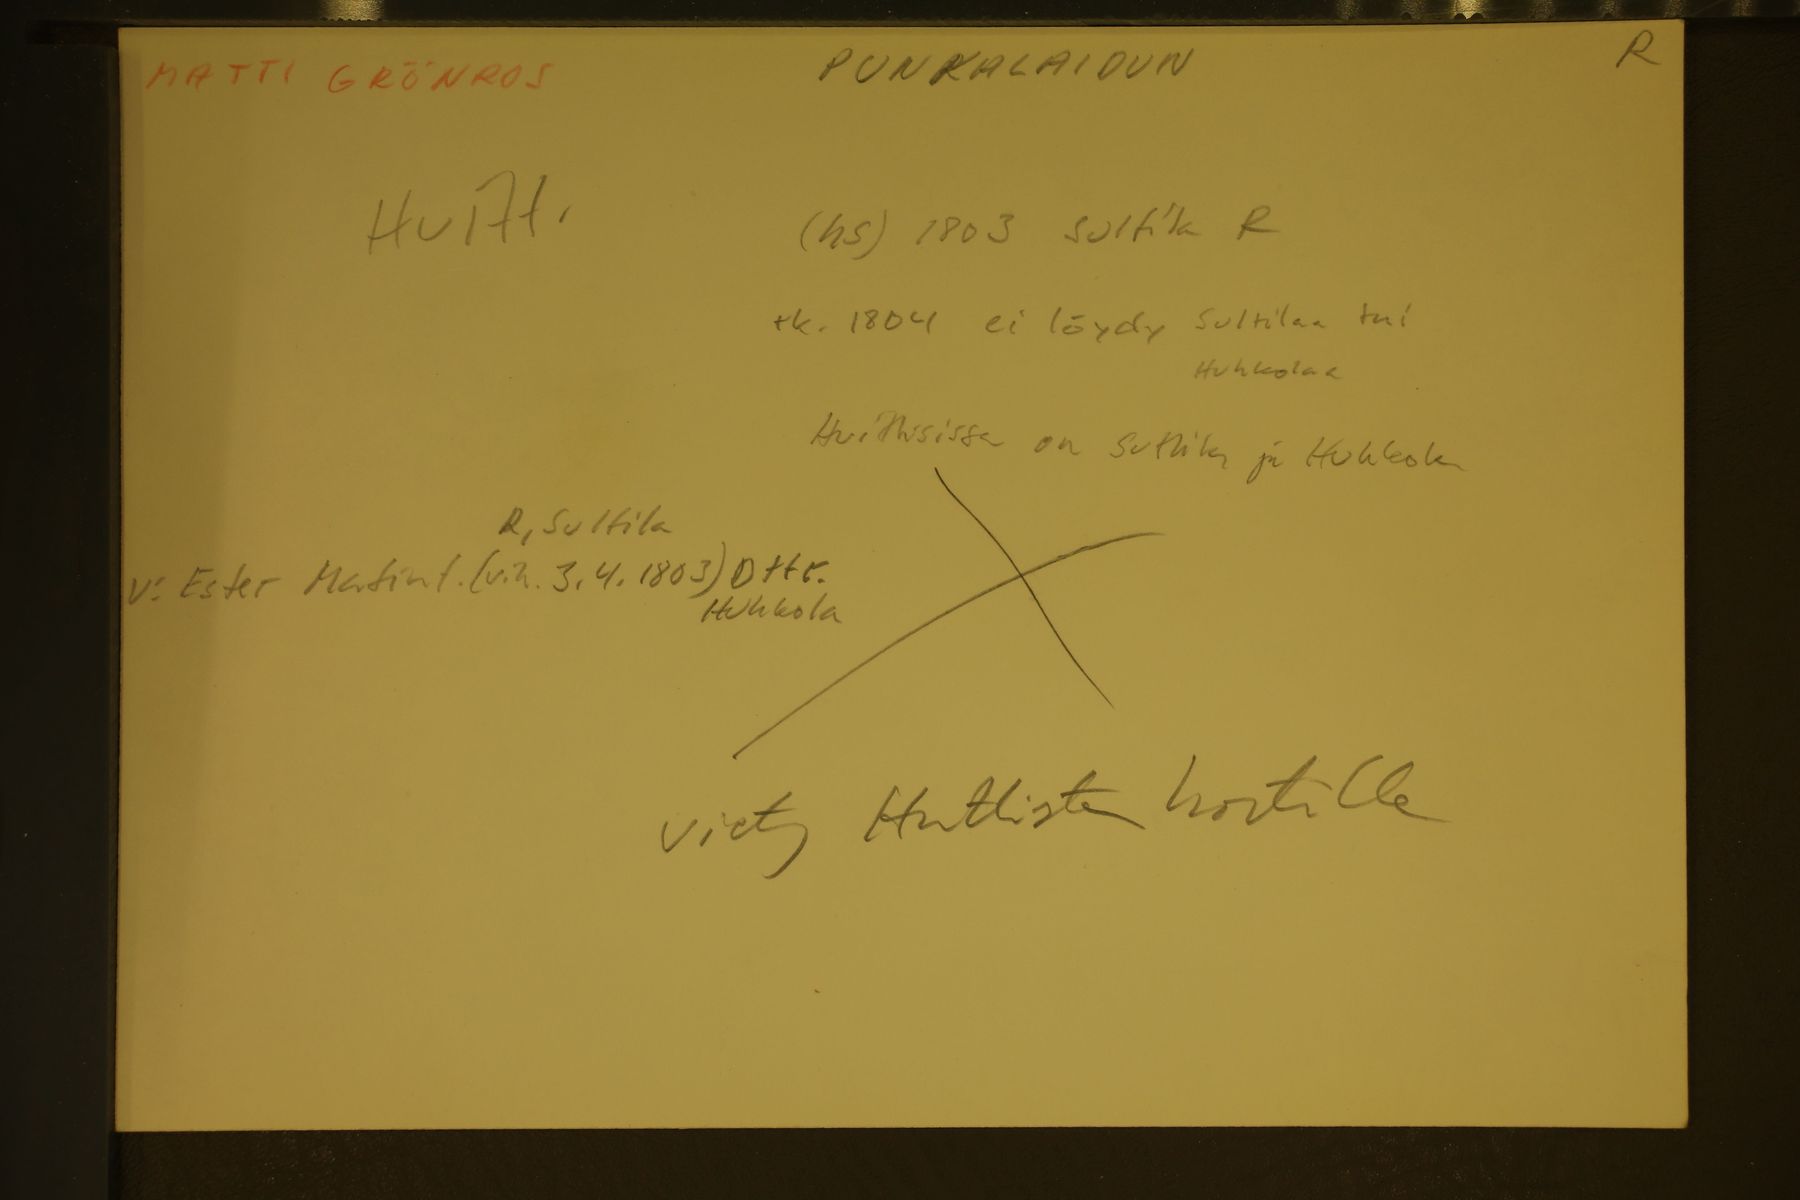 MATTI GRÖNROS PUNKALAIDUN R
Huitt. (hs) 1803 Sultila R
rk. 1804 ei löydy Sultilaa tai
Huhkolaa
Huittisissa on Sultila ja Huhkola
R, Sultila
v: Ester Martint. (vih. 3.4. 1803) Dttr.
Huhkola
viety Huittisten kortille